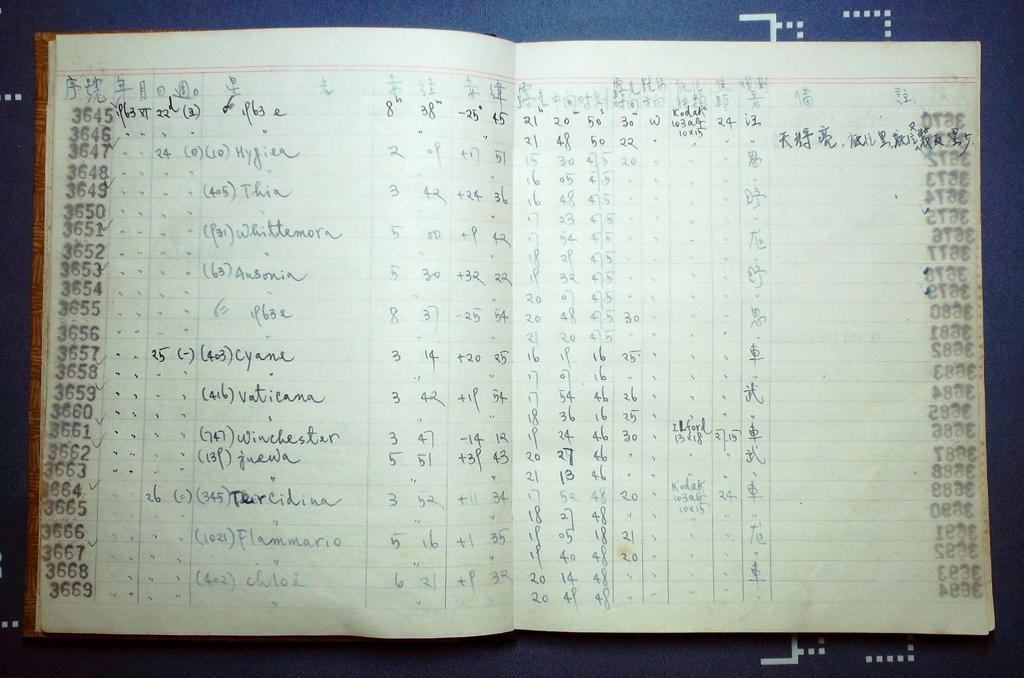 序號 年 月 日 週 星 名 赤 經 赤 緯 露光中间时刻 露光时间 备 註
3645 1963 22d (2) 1963e 8h 38m -25° 45 21 20 50 30 W Kodak 103aO 10x15 24 江
3646 " " " 21 48 50 22 " " " 天將亮
3647 " " 24 (10) Hygiea 2 09 +17 51 15 30 45 20
3648 " " " 16 05 45
3649 (405) Thia 3 42 +24 36 16 48 45 野
3650 " 17 23 45
3651 (931) Whittemora 5 00 +9 42 17 54 45
3652 " 18 29 45
3653 (63) Ausonia 5 30 +32 22 19 32 45 野
3654 " 20 07 45
3655 1963e 8 37 -25 54 20 48 45 30 思
3656 " 21 20 45
3657 " " 25 (-) (403) Cyane 3 14 +20 25 16 19 16 25 車
3658 " 17 07 16
3659 (416) Vaticana 3 42 +19 54 17 54 46 26 武
3660 " 18 36 16 25
3661 (747) Winchester 3 47 -14 12 19 24 46 30 Ilford 13x18 車
3662 (139) Juewa 5 51 +39 43 20 27 46 武
3663 " 21 13 46
3664 " " 26 (=) (345) Tercidina 3 52 +11 34 17 52 48 20 Kodak 103aO 10x15 24 車
3665 " 18 27 48
3666 (1021) Flammario 5 16 +1 35 19 05 18 21
3667 " 19 40 48 20
3668 (402) Chloë 6 21 +9 32 20 14 48 車
3669 " 20 49 48